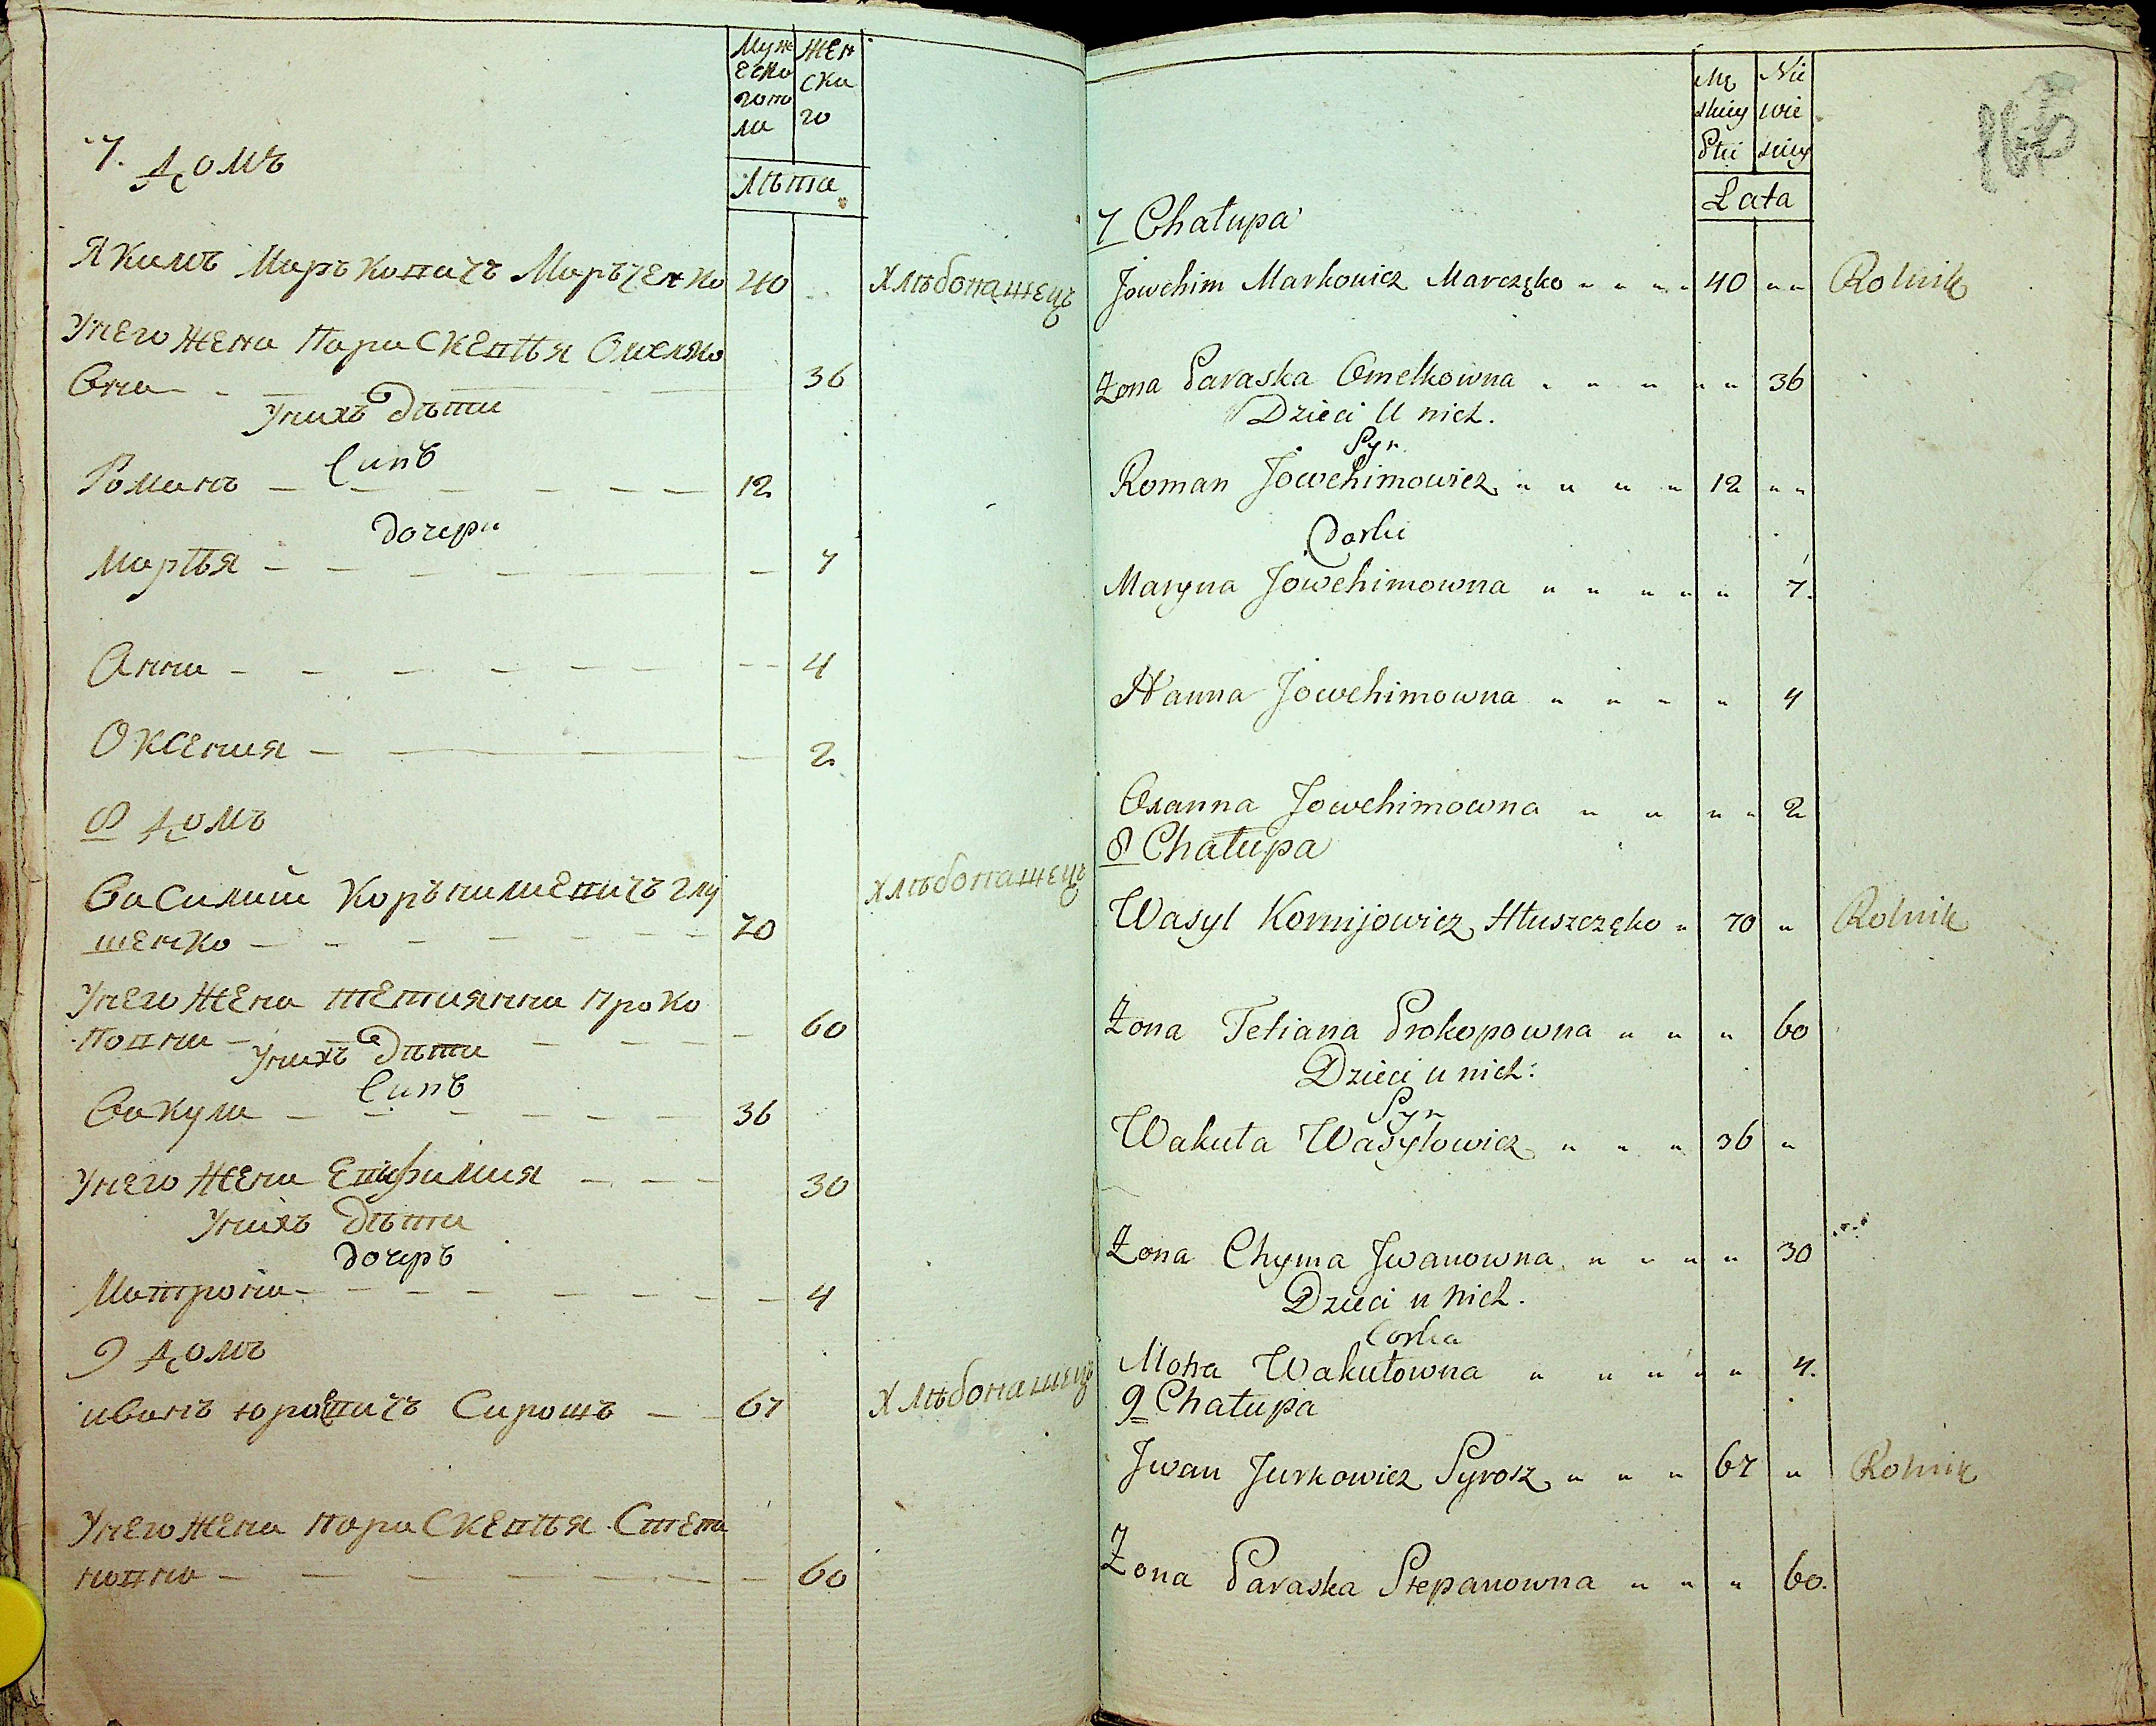 Муж ЖЕН
Еско ска
гопо го
ла
7. Домъ
Лѣта
Якимъ Марковичъ Марченко 40 Хлѣбопашецъ
Унего жена Параскевѣя Омелко
вна 36
Унихъ Дѣти
Синъ
Романъ 12
дочери
Марѣя 7
Анна 4
Оксения 2
8 Домъ
Василий Корънилиевичъ Глу Хлѣбопашецъ
шенко 70
Унего жена Тетиянна Проко
повна 60
Унихъ Дѣти
Синъ
Вакула 36
Унего жена Евфимия 30
Унихъ Дѣти
дочеръ
Матрона 4
9 Домъ
иванъ юревичъ Сирошъ 67 Хлѣбопашецъ
Унего жена Параскевѣя Степа
новна 60
Mę Nie
skiey wie
Płci skiey
Łata
7 Chałupa
Jowchim Markowicz Marczęko 40 Rolnik
Żona Paraska Omelkowna 36
Dzieci U nich.
Syn
Roman Jowchimowicz 12
Corki
Maryna Jowchimowna 7.
Hanna Jowchimowna 4
Oxanna Jowchimowna 2
8 Chałupa
Wasyl Kornijowicz Hłuszczęko 70 Rolnik
Żona Tetiana Prokopowna 60
Dzieci u nich:
Syn
Wakuła Wasylowicz 36
Żona Chyma Jwanowna 30
Dzieci u nich.
Corka
Motra Wakułowna 4.
9 Chałupa
Jwan Jurkowicz Syrosz 67 Rolnik
Żona Paraska Stepanowna 60.